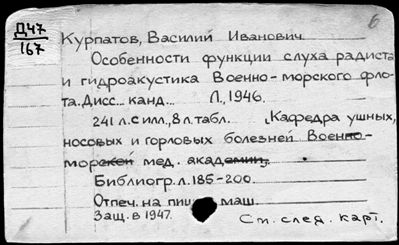 Д47
167
6
Курпатов, Василий Иванович
Особенности функции слуха радиста
и гидроакустика Военно-морского фло-
та. Дисс... канд... Л., 1946.
241 л. с илл., 8 л. табл. (Кафедра ушных,
носовых и горловых болезней Военно-
морской мед. академии)
Библиогр. л. 185-200.
Отпеч. на пиш. маш.
Защ. в 1947.
См. след. карт.